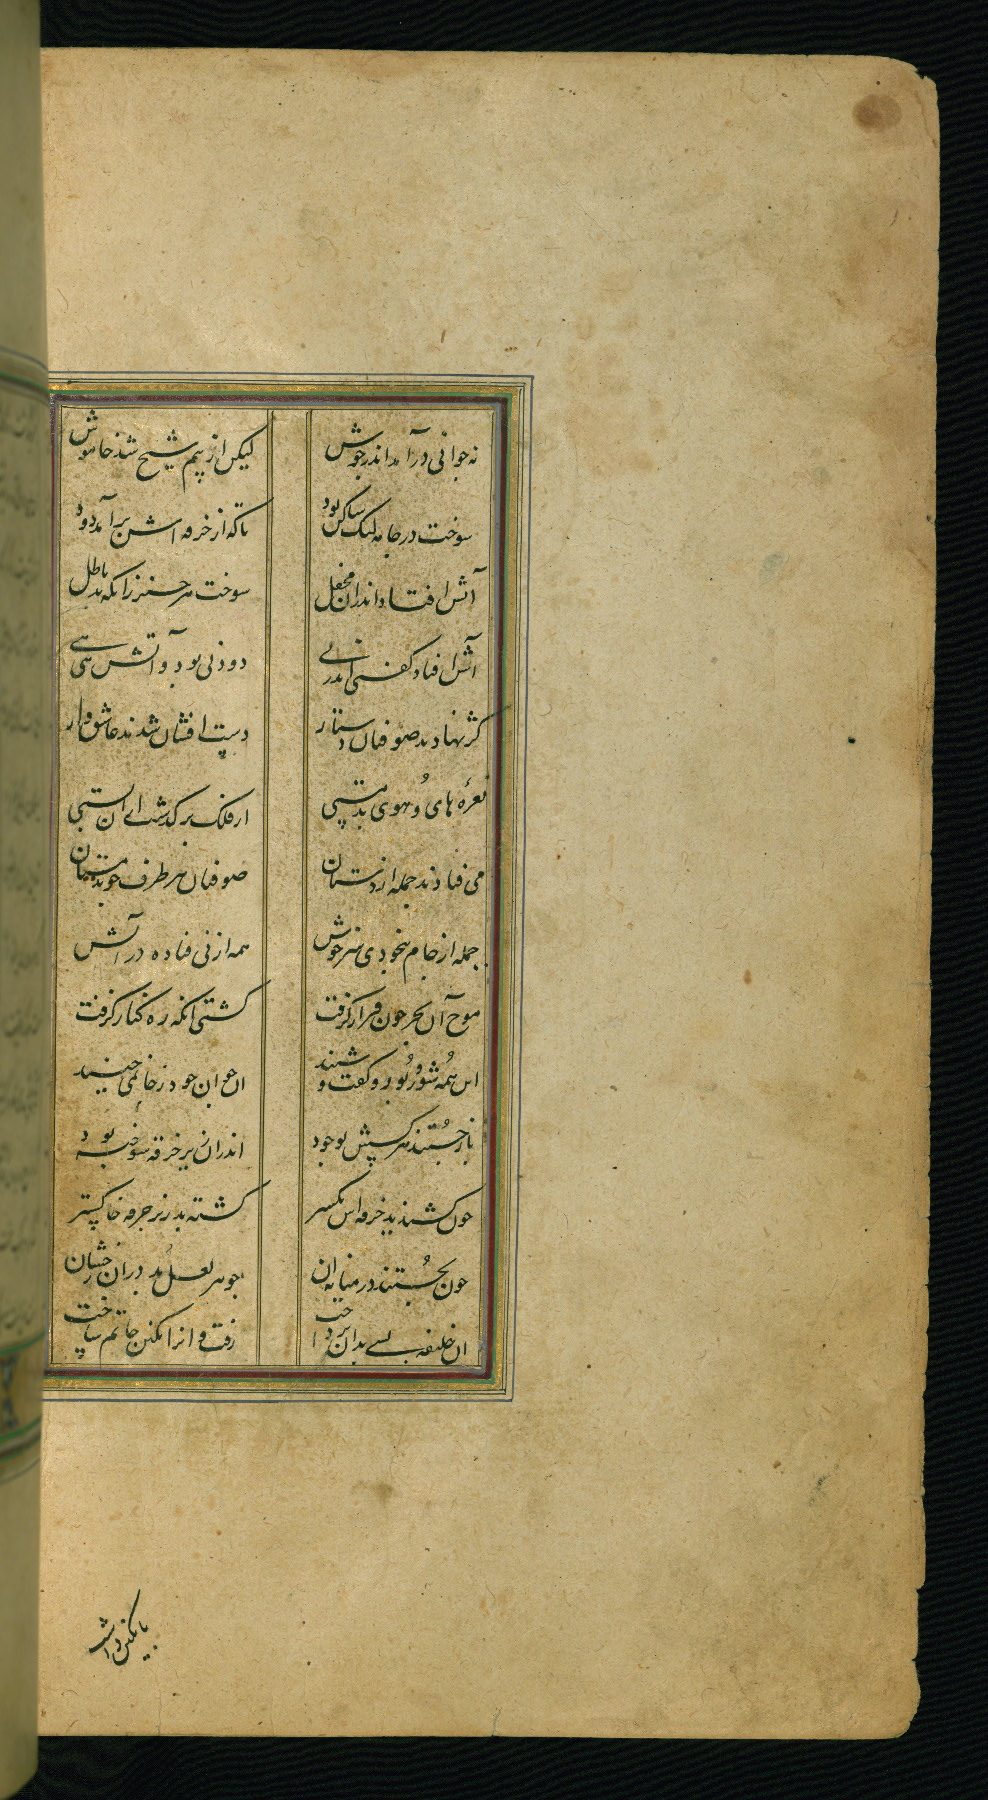 نه جوانی درآمد اندر جوش لیکن از بیم شیخ شد خاموش
سوخت در جامه لیک ساکن بود تا که از خرقه اش برآمد دود
آتش افتاد اندران محفل سوخت هر چیز زانکه بد باطل
آتش افتاد دود نی بود و آتش
کژ نهادند صوفیان دستار دست افشان شدند عاشق وار
نعره های و هوی بدمستی از فلک برگذشت
می فتادند جمله از دستان صوفیان هر طرف چو بدمستان
جمله از جام بیخودی سرخوش همه از نی فتاده در آتش
موج آن بحر چون قرار گرفت کشتی آنکه ره کنار گرفت
این همه شور بود و گفت و شنید ان جوان خود ز جا نمی جنبید
باز جستند هر کسش بوجود اندران زیر خرقه سوخته بود
چون کشیدند خرقه اش یکسر گشته بد زیر خرقه خاکستر
چون بجستند در میانه آن جوهر لعل بد دران رخشان
ان خلیفه بسی بدان پرداخت رفت و انرا نگین خاتم ساخت
با نگین داشت